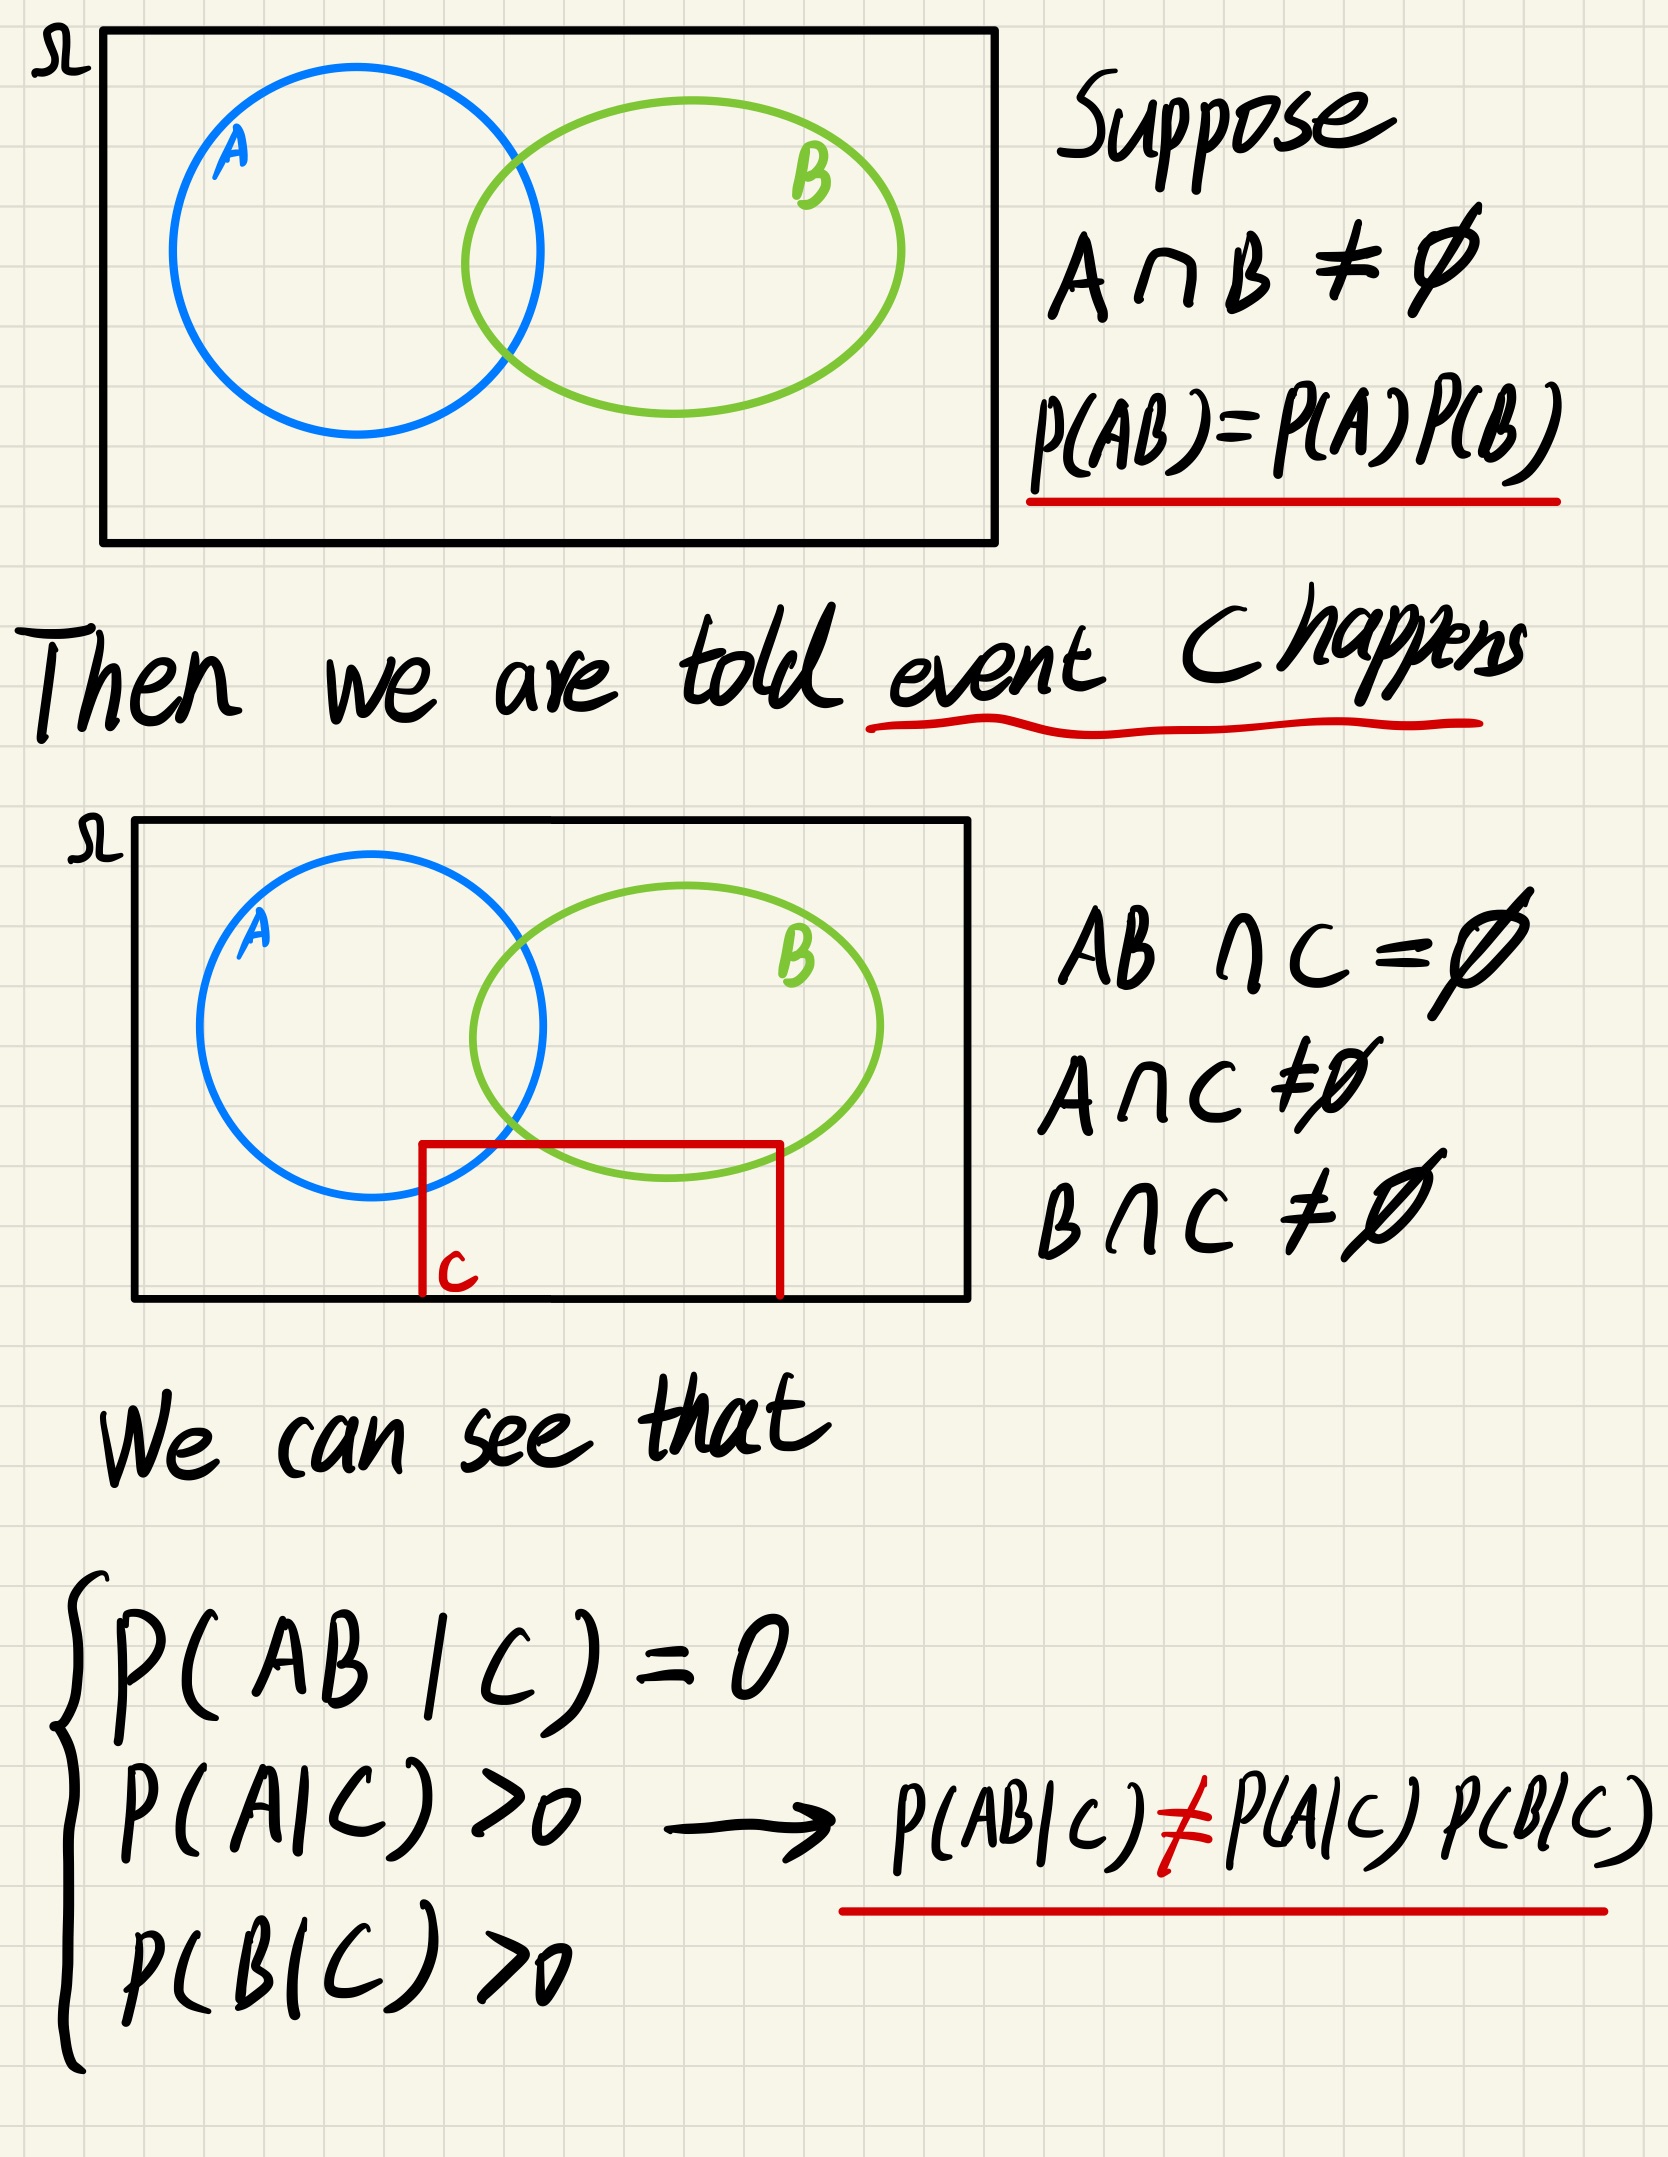 Ω
A
B
Suppose
A ∩ B ≠ ∅
P(AB) = P(A) P(B)
Then we are told event C happens
Ω
A
B
C
AB ∩ C = ∅
A ∩ C ≠ ∅
B ∩ C ≠ ∅
We can see that
P( AB | C ) = 0
P( A | C ) > 0 → P(AB|C) ≠ P(A|C) P(B|C)
P( B | C ) > 0